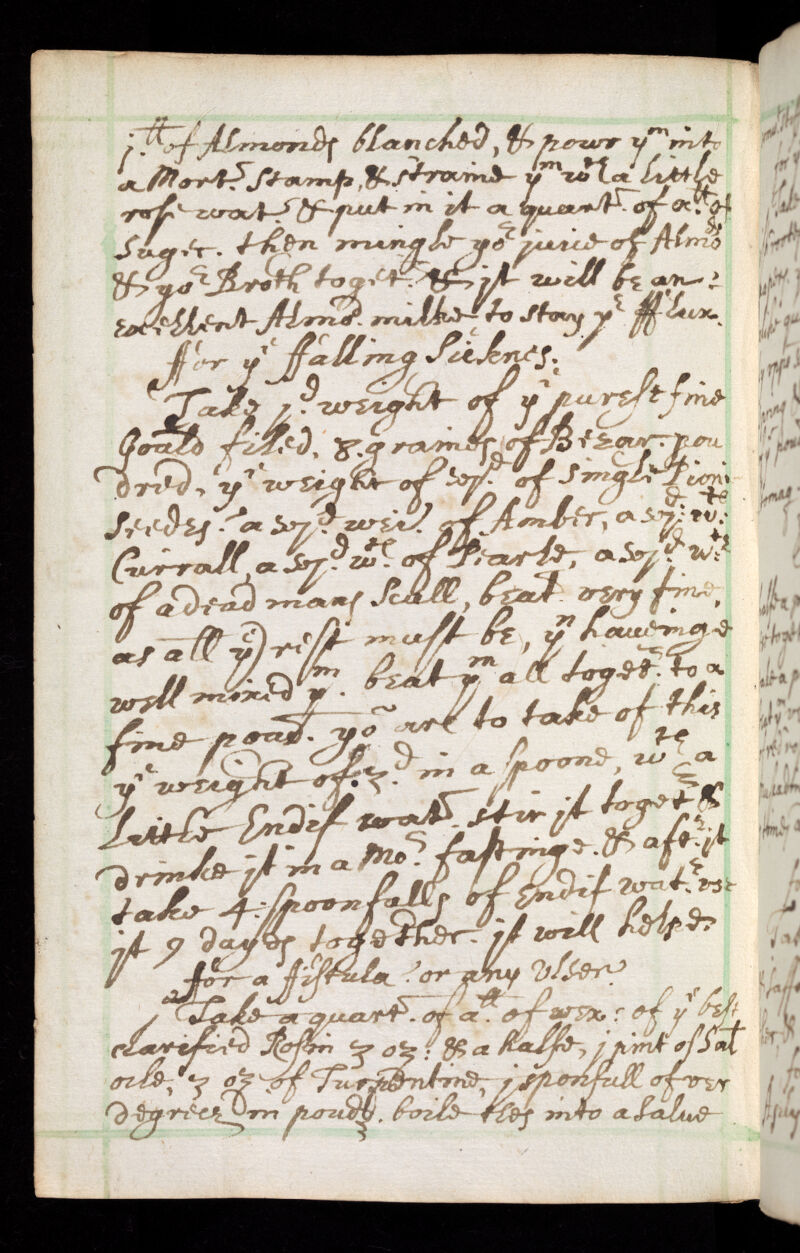 j.tt of Almonds blanched, & powr ym into
a Mort.r stamp, & straine ym wth a little
rose wat.r & put in it a quart.r of a.tt of
Suger. then mingle yor juice of Almo.ds
& yor Broth toget.r & jt will be an :
excellent Almo.d milke to stay ye fflux.
ffor ye ffalling Sicknes.
Take j.d weight of ye purest fine
Goald filed, 8. graines of Bezar. pou
dred, ye weight of 
 of single Pioni
seedes. a 
 wei.t of Amber, a 
 wt:
Currall, a 
 wt. of Pearle, a 
 wt:
of a dead mans Scull, beat very fine,
as all ye) rest must be, yn haueinge
well mixed ym. beat ym all toget.r to a
fine poud.r yo.u are to take of this
ye weight of .3.d in a spoone, wth a
Little Endif wat.r stir jt toget.r &
drinke jt in a Mo.r fastinge. & aft.r jt
take 4: spoonfalls of Endif wat.r vse
jt 9 dayes together. jt will helpe.
ffor a ffistula. or any Vlser.
Take a quart.r of a.tt of wex: of ye best
clarified Rosin 3 oz: & a halfe, j pint of Salt
oile, 3 oz of Turpentine, j sponfull of ver
degrece in poudr. boile thes into a Salue